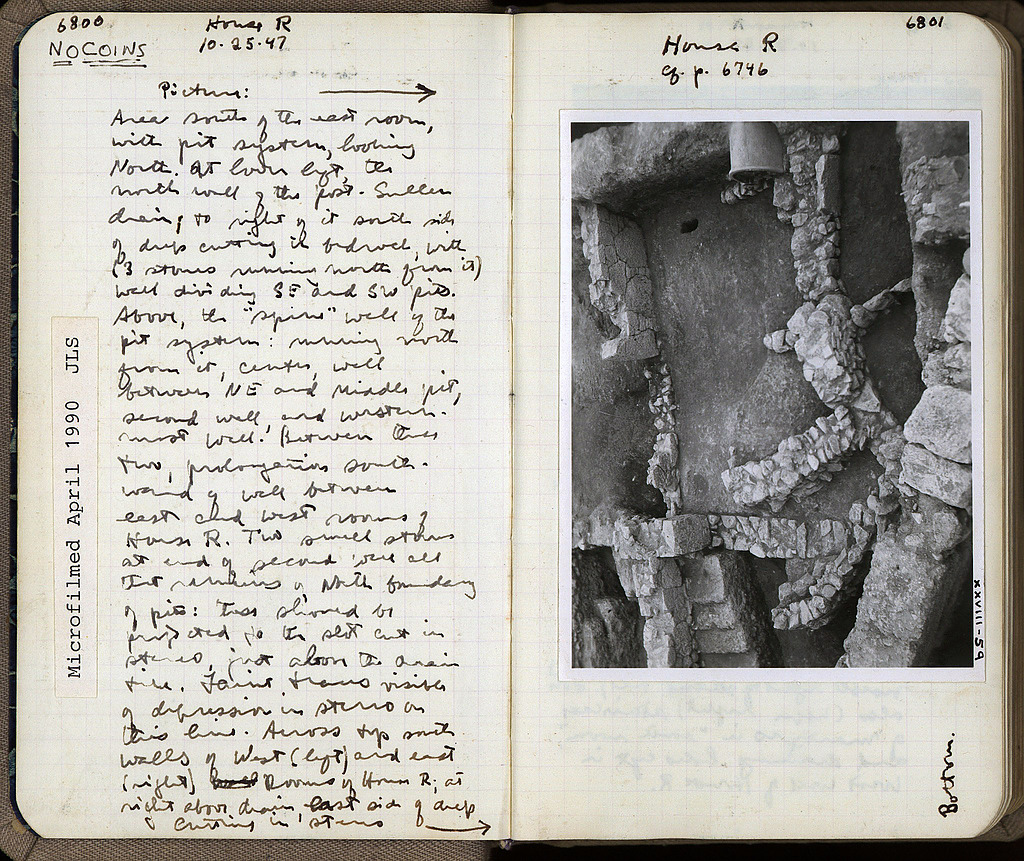 6800
House R
10.25.47
NO COINS
Picture:
Area south of the east room,
with pit system, looking
North. At lower left, the
north wall of the post-Sullan
drain; to right of it south side
of deep cutting in bedrock, with
(3 stones running north from it)
wall dividing SE and SW pits.
Above, the "spine" wall of the
pit system: running north
from it, center, wall
between NE and Middle pit,
second wall, and western-
most wall. Between these
two, prolongation south-
ward of wall between
east and west rooms of
House R. Two small stones
at end of second wall all
that remains of North boundary
of pits: this should be
projected to the slot cut in
stereo, just above the drain
tile. Faint traces visible
of depression in stereo on
this line. Across top south
walls of West (left) and east
(right) Rooms of House R; at
right above drain, east side of deep
cutting in stereo
Microfilmed April 1990 JLS
6801
House R
cf. p. 6746
XXVIII-59
Bottom.